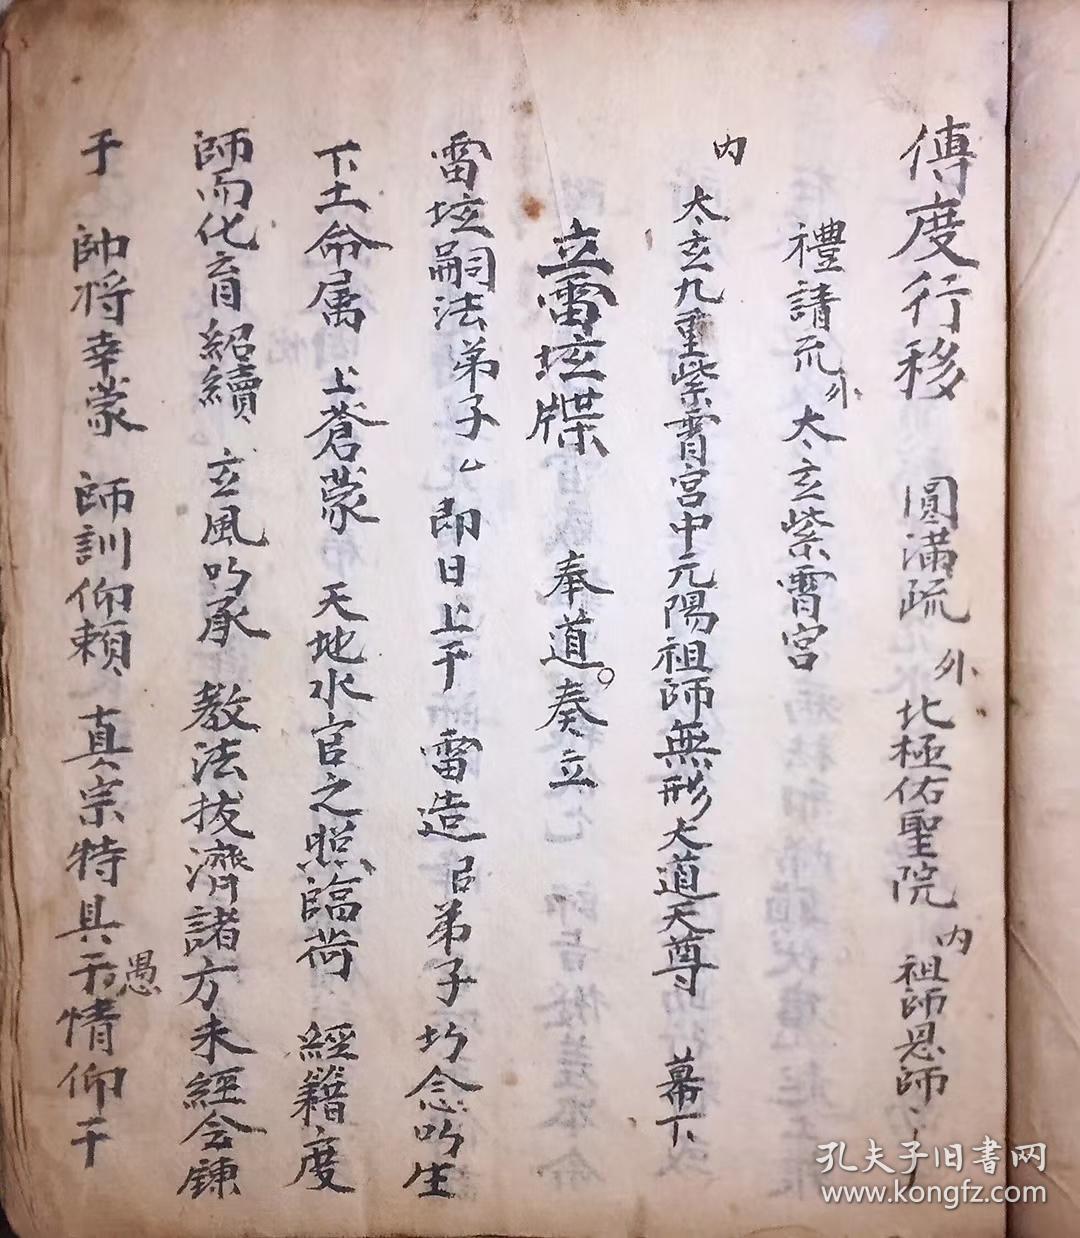 傳度行移 圓滿疏 外 北極佑聖院 内 祖師恩師
禮請 外 太玄紫霄宮
内 太玄九重紫霄宮中元陽祖師無形大道天尊 幕下
立雷坛牒 奉道。奏立
雷坛嗣法弟子厶 即日上干 雷造 臣弟子切念吟生
下土命属 上蒼蒙 天地水官之照臨荷 經籍度
師而化育紹續 玄風吟承 教法拔濟諸方未經会錬
于 帥将幸蒙 師訓仰賴 真宗特具 愚情仰干
孔夫子旧书网
www.kongfz.com